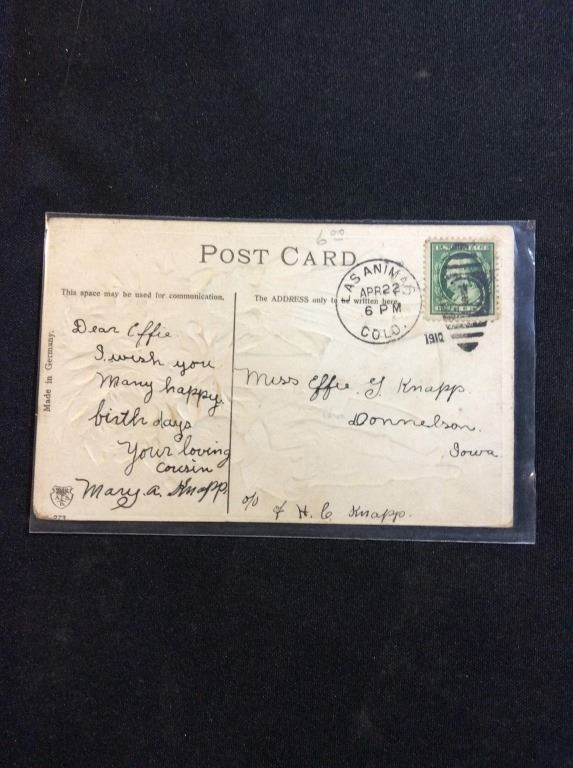 6 00
POST CARD
This space may be used for communication.
The ADDRESS only to be written here.
U.S. POSTAGE
LAS ANIMAS
APR 22
6 PM
COLO.
1910
Made in Germany.
Dear Effie
I wish you
Many happy
birth days
Your loving
cousin
Mary. A. Knapp.
Miss Effie. J. Knapp.
Donnelson.
Iowa
H. C. Knapp.